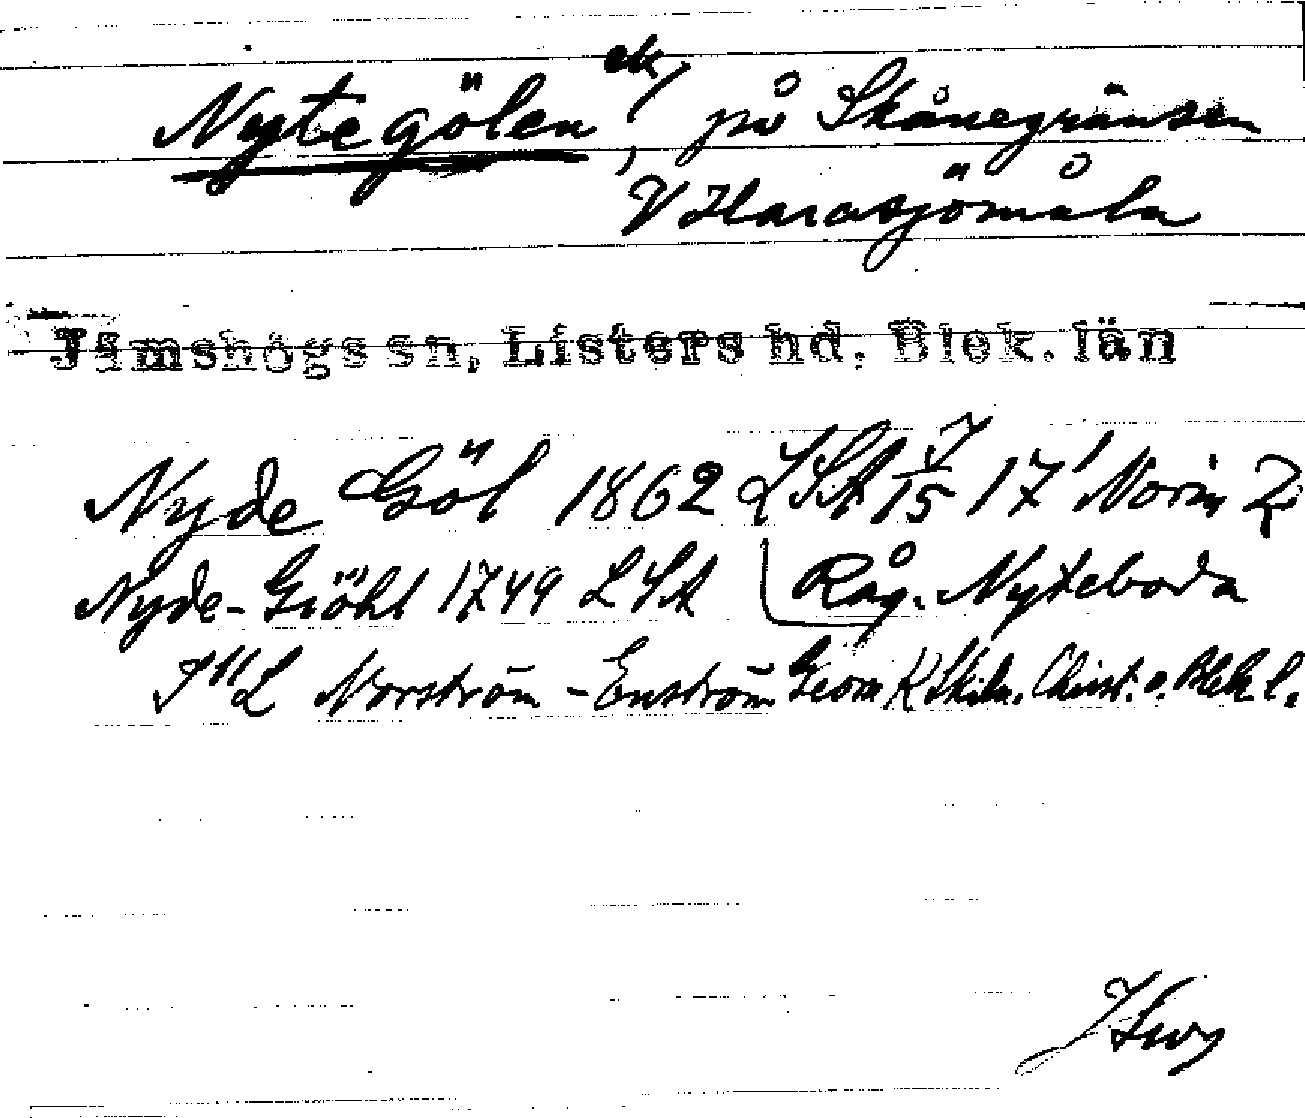 Nytegölen ek, på Skånegränsen
V Harasjömåla
Jämshögs sn, Listers hd. Blek. län
Nyde Göl 1862 LSA 17' Norin
Nyde-Giöhl 1749 LSA Råg. Nyteboda
Norström - Enström Geom K Skiln. Christ. o. Blek. l.